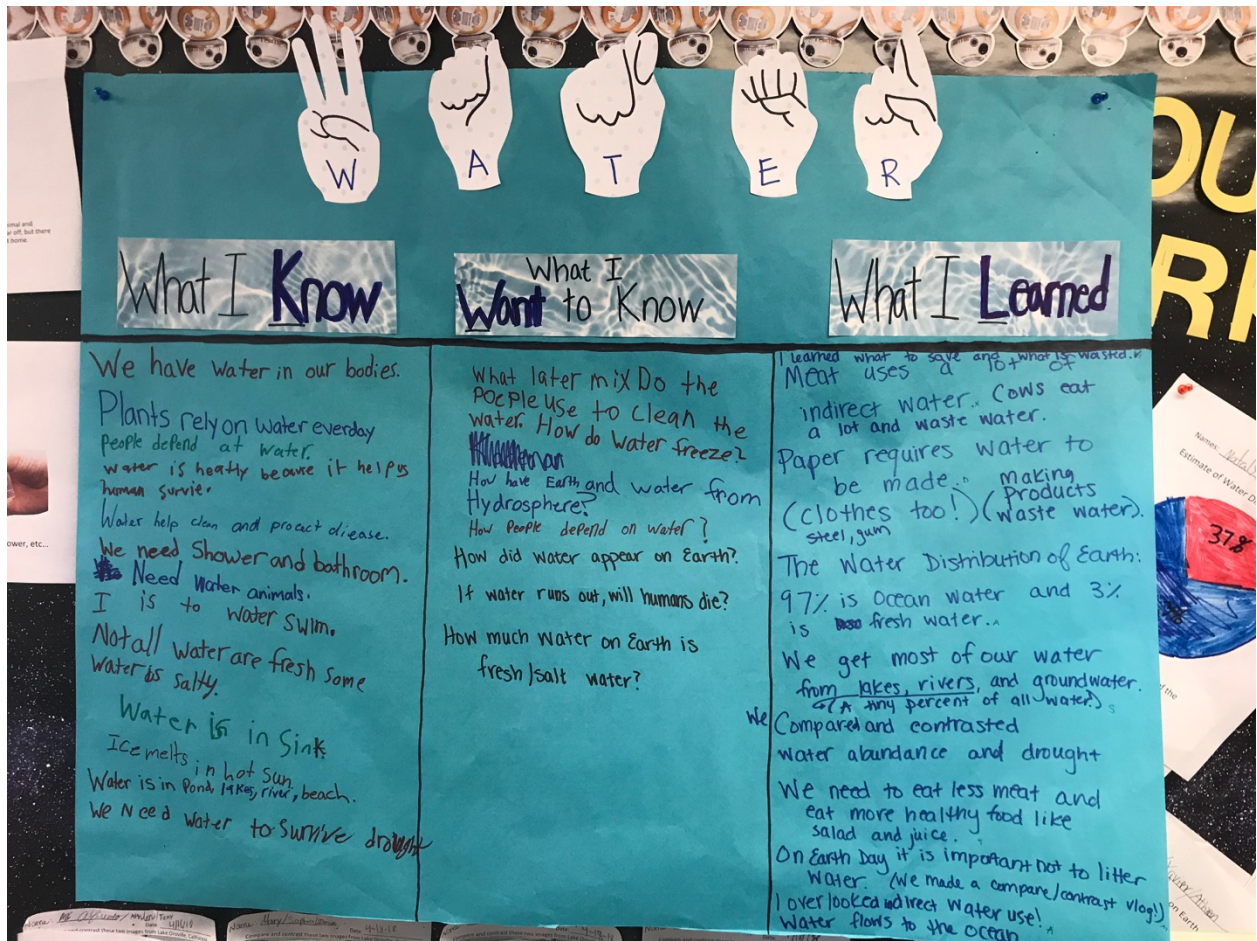 W A T E R
What I Know
We have water in our bodies.
Plants rely on water everday
People depend at water.
water is heatly because it helps
human survie.
Water help clean and procect disease.
We need Shower and bathroom.
Need water animals.
I is to water swim.
Not all water are fresh some
water is salty.
Water is in Sink.
Ice melts in hot sun.
Water is in Pond, lakes, river, beach.
We Need water to survive drought
What I
Want to Know
What later mix Do the
poeple use to clean the
water. How do water freeze?
How have Earth and water from
Hydrosphere?
How People depend on water?
How did water appear on Earth?
If water runs out, will humans die?
How much water on Earth is
fresh/salt water?
What I Learned
I learned what to save and what is wasted.
Meat uses a lot of
indirect water. Cows eat
a lot and waste water.
Paper requires water to
be made.
(clothes too!)
steel, gum
(making
Products
waste water).
The Water Distribution of Earth:
97% is Ocean water and 3%
is fresh water.
We get most of our water
from lakes, rivers, and groundwater.
(A tiny percent of all water!)
We Compared and contrasted
water abundance and drought
We need to eat less meat and
eat more healthy food like
salad and juice.
On Earth Day it is important not to litter
water. (We made a compare/contrast vlog!)
I overlooked indirect water use!
Water flows to the ocean
OU
RK
Names:
Estimate of Water D
37%
of the
on Earth
imal and
ar off, but there
home.
ower, etc...
Name:
Date 4/11/18
Name:
4-13-18
Compare and contrast these two images from Lake Oroville, California